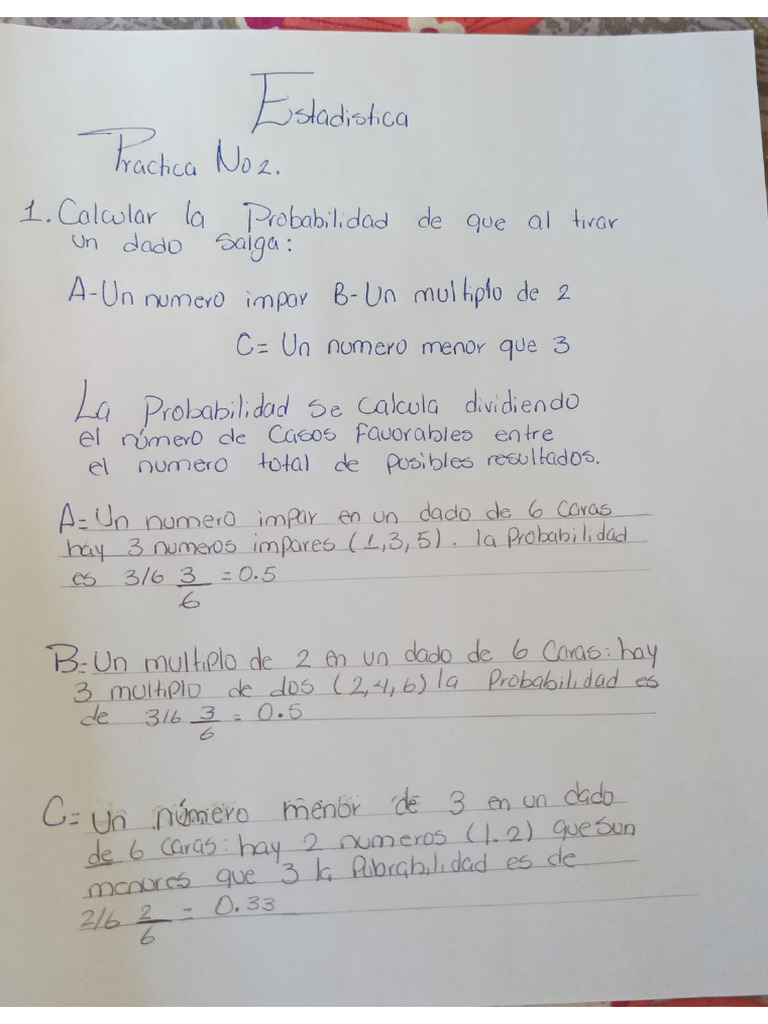 Estadistica
Practica No 2.
1. Calcular la Probabilidad de que al tirar
un dado salga:
A-Un numero impar B-Un multiplo de 2
C= Un numero menor que 3
La Probabilidad se calcula dividiendo
el número de Casos Favorables entre
el numero total de posibles resultados.
A=Un numero impar en un dado de 6 caras
hay 3 numeros impares (1,3,5). la Probabilidad
es 3/6 3/6 = 0.5
B=Un multiplo de 2 en un dado de 6 Caras: hay
3 multiplo de dos (2,4,6) la Probabilidad es
de 3/6 3/6 = 0.5
C= Un número menor de 3 en un dado
de 6 caras: hay 2 numeros (1.2) que sun
menores que 3 la Pobrabilidad es de
2/6 2/6 = 0.33